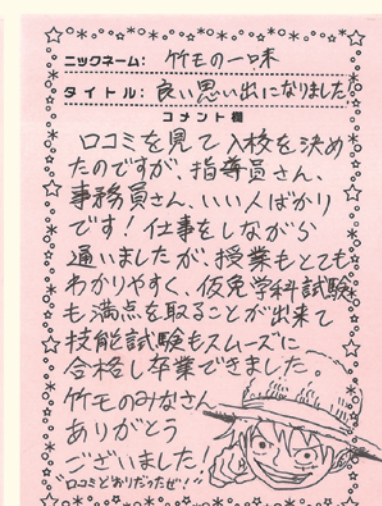 ニックネーム: 竹モの一味
タイトル: 良い思い出になりました!
コメント欄
口コミを見て入校を決め
たのですが、指導員さん、
事務員さん、いい人ばかり
です!仕事をしながら
通いましたが、授業もとても
わかりやすく、仮免学科試験
も満点を取ることが出来て
技能試験もスムーズに
合格し卒業できました。
竹モのみなさん
ありがとう
ございました!
"口コミどおりだったぜ!"